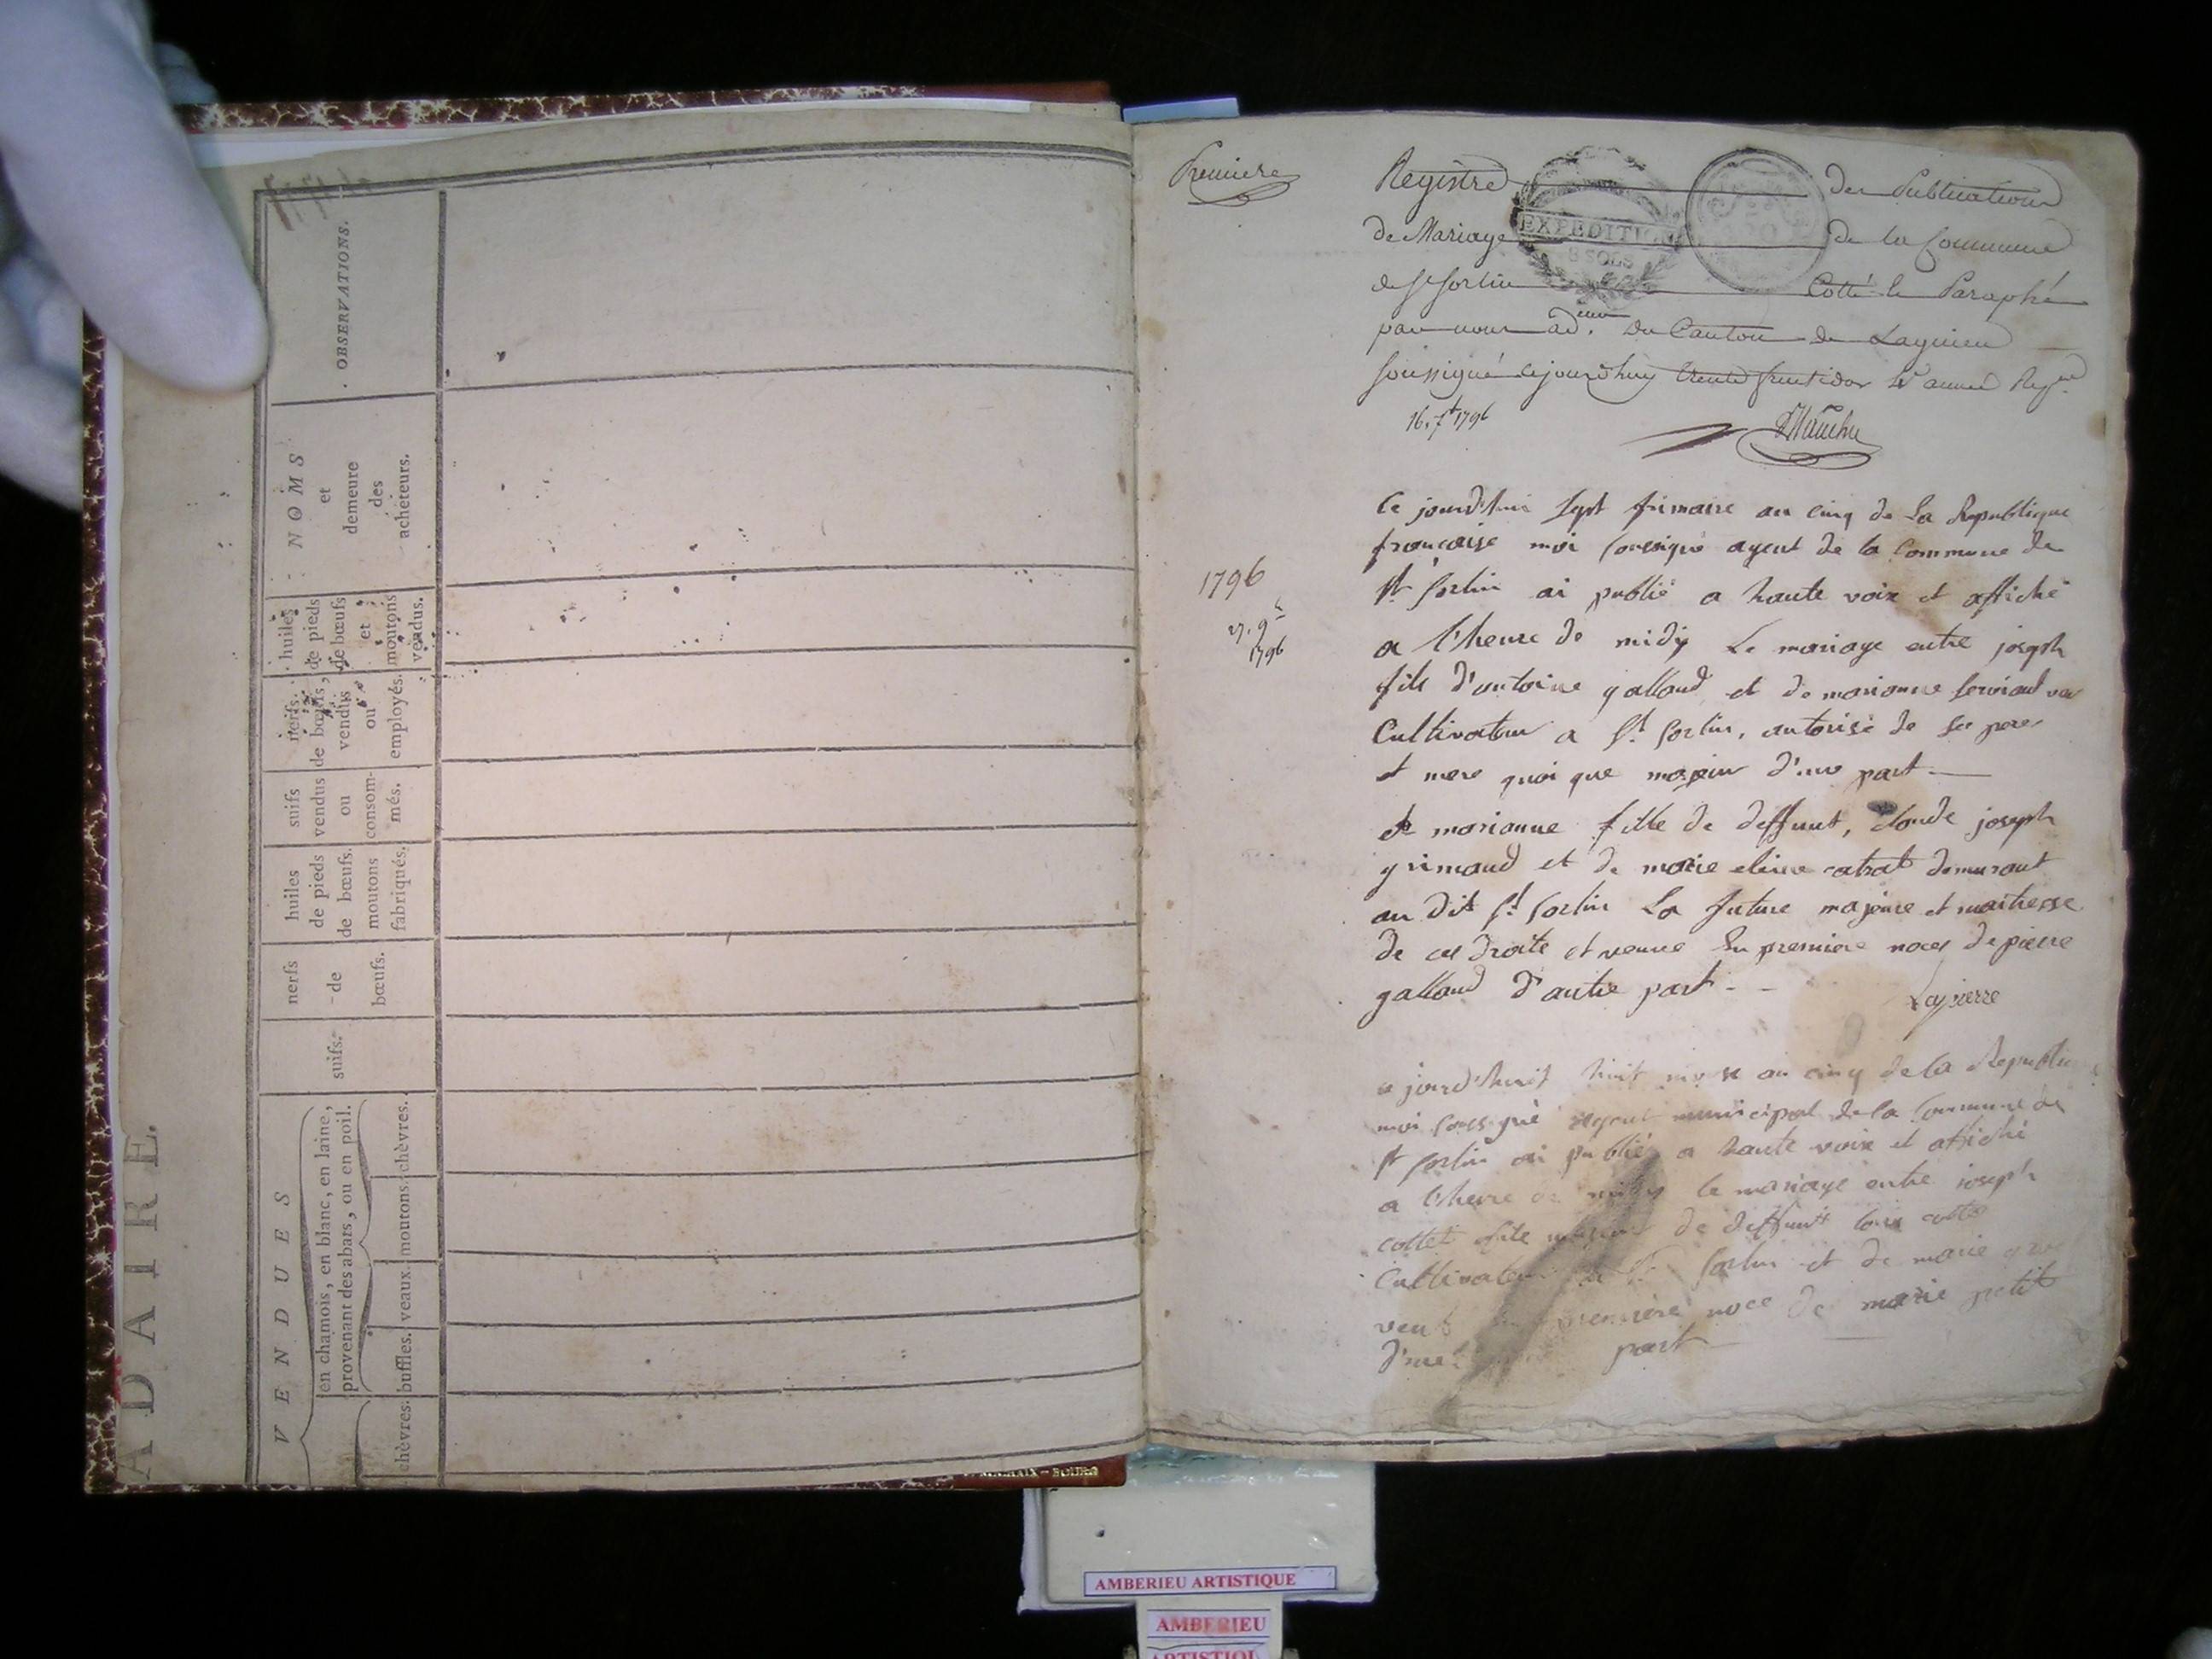 ADAIRE.
OBSERVATIONS.
NOMS
et
demeure
des
acheteurs.
huiles
de pieds
de bœufs
et
moutons
vendus.
nerfs
de bœufs,
vendus
ou
employés.
suifs
vendus
ou
consom-
més.
huiles
de pieds
de bœufs.
moutons
fabriqués.
nerfs
de
bœufs.
suifs.
VENDUES
en chamois, en blanc, en laine,
provenant des abats, ou en poil.
chèvres.
moutons.
veaux.
buffles.
chèvres.
Premiere
Registre des Publications
de Mariage de la Commune
de St Sorlin Cotté et Paraphé
par nous ad. du Canton de Lagnieu
soussigné cejourdhuy trente fructidor 4e année Rep
16. 7 1796
EXPEDITION
8 SOLS
1796
27. 9
1796
Ce jourd'hui sept frimaire an cinq de La Republique
françoise moi soussigné agent de la Commune de
St Sorlin ai publié a haute voix et affiché
a l'heure de midy Le mariage entre joseph
fils d'antoine galland et de marianne
Cultivateur a St Sorlin, autorisé de ses pere
et mere quoi que majeur d'une part
et marianne fille de deffunt, claude joseph
grimaud et de marie demeurant
au dit St Sorlin La future majeure et maitresse
de ces droits et veuve En premiere noces de pierre
galland d'autre part
Lapierre
ce jourd'huit huit nivose an cinq de la Republi
moi soussigné agent municipal de la Commune de
St Sorlin ai publié a haute voix et affiché
a l'heure de midy le mariage entre joseph
cottet fils majeur de deffunt
Cultivateur a St Sorlin et de marie
veuf en premiere noce de marie petit
d'une part
AMBERIEU ARTISTIQUE
AMBERIEU